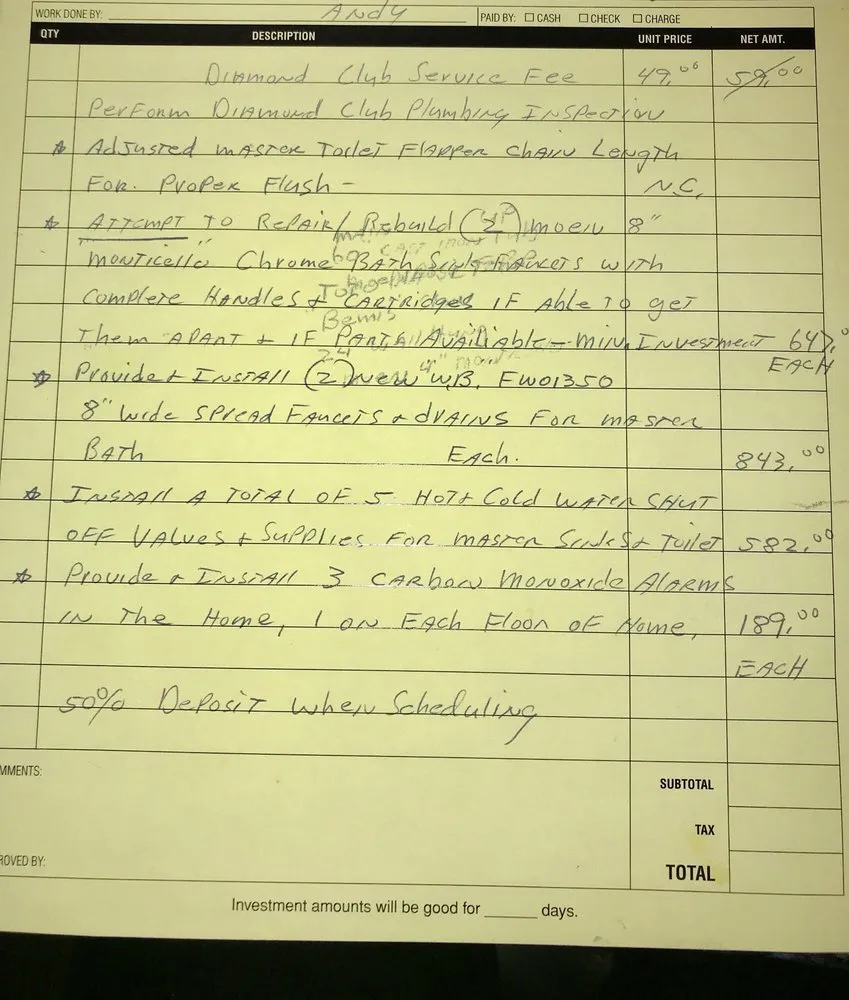 WORK DONE BY: Andy PAID BY: ☐ CASH ☐ CHECK ☐ CHARGE
QTY DESCRIPTION UNIT PRICE NET AMT.
Diamond Club Service Fee 49.00 59.00
Perform Diamond Club Plumbing Inspection
☆ Adjusted master Toilet Flapper chain Length
For. Proper Flush - N.C.
☆ ATTEMPT TO Repair/Rebuild (2) moen 8"
monticello Chrome BATH Sink Faucets with
complete Handles & CARTRIDGES IF Able TO get
Them APART & IF Parts Availiable - min. Investment 647.0
EACH
☆ Provide & Install (2) new WB. FW01350
8" Wide Spread Faucets & drains For master
Bath Each. 843.00
☆ Install A TOTAL OF 5 HOT & Cold WATER SHUT
OFF Values & Supplies For master Sinks & Toilet 582.00
☆ Provide & Install 3 CARBON Monoxide Alarms
IN The Home, 1 ON EACH Floor OF Home, 189.00
EACH
50% Deposit When Scheduling
MMENTS:
SUBTOTAL
TAX
ROVED BY:
TOTAL
Investment amounts will be good for ______ days.